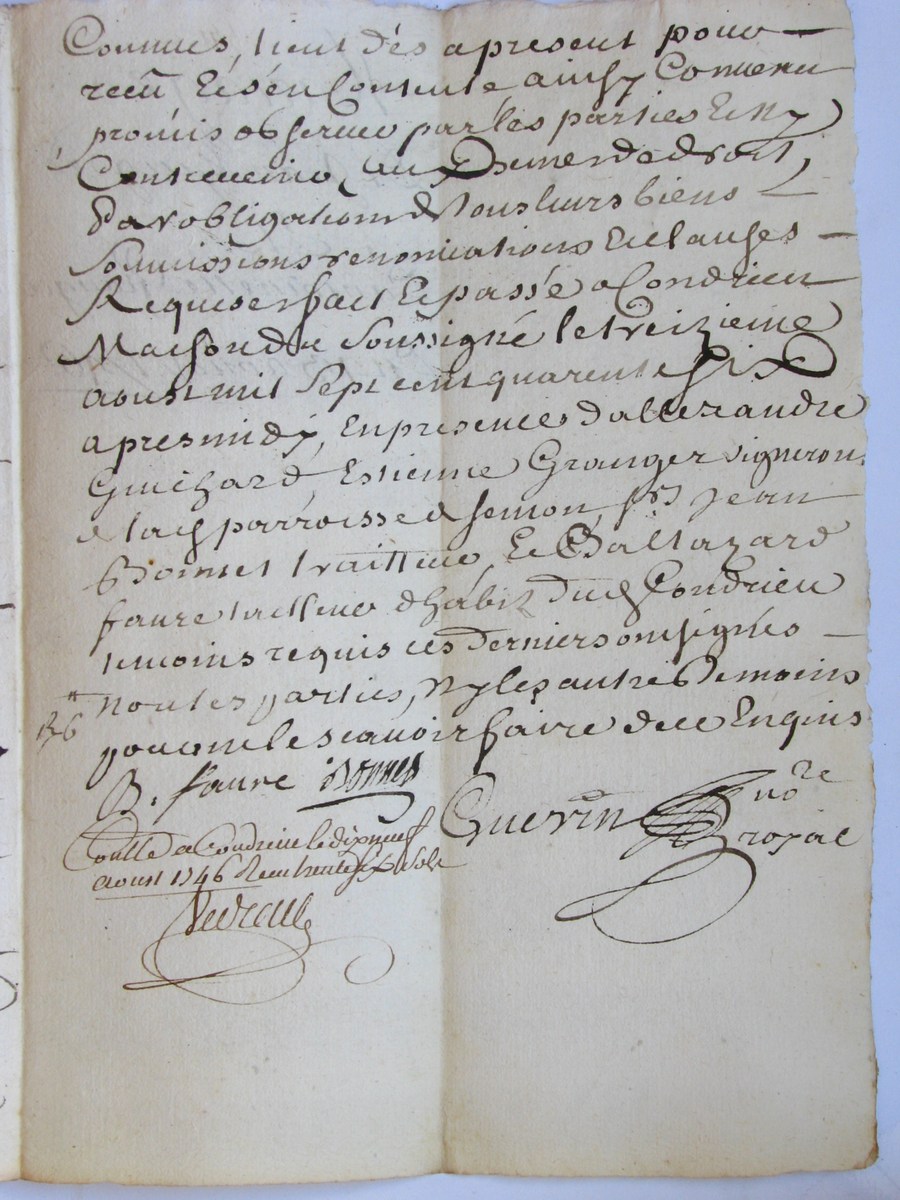 Connues, tient dés a present pour
receu Et s'en Contente ainsy Convenu
promis observer par les parties Et n'y
Contrevenir, aux peines de droit,
Par obligations de tous leurs biens
Soumissions renonciations Et Clauses
Requises fait Et passé a Condrieu
Maison du Soussigné le treizieme
aoust mil Sept cent quarente Six
apres midy, En presence d'allexandre
Guichard, Estienne Granger vigneron
de lad parroisse de Semon, srs Jean
Bonnet traitteur, Et Baltazard
faure tailleur d'habit dud Condrieu
temoins requis ces Derniers ont signés
Non les parties, Ny les autres temoins
pour ne le Scavoir faire de ce Enquis
B. faure Bonnet
Guerin nore
royal
Conllé a Condrieu le dix neuf
aoust 1746 Receu trente six sols